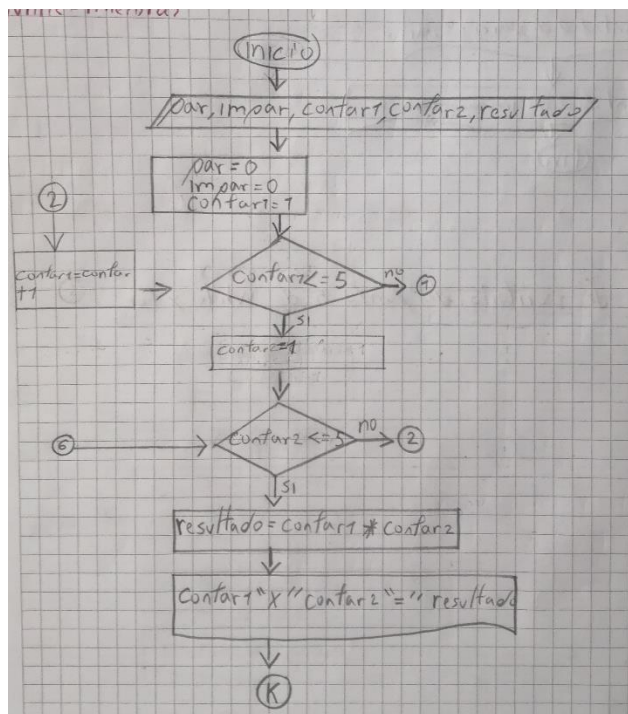 Inicio
par, impar, contar1, contar2, resultado
par = 0
impar = 0
contar1 = 1
2
contar1=contar
+1
contar1<= 5
no
1
si
contar2=1
6
contar2 <= 5
no
2
si
resultado = contar1 * contar2
contar1 "x" contar2 "=" resultado
K